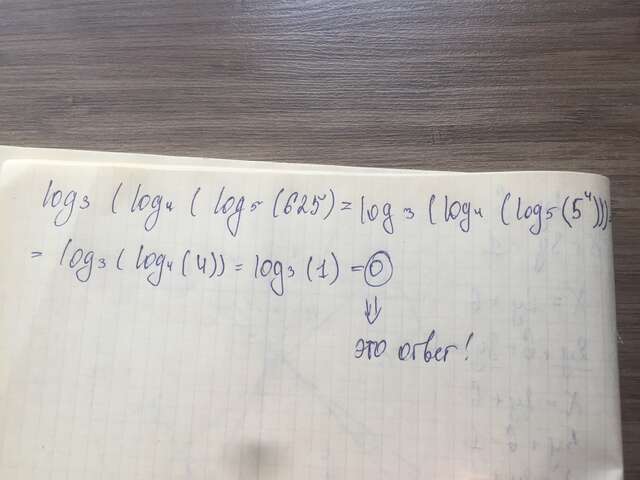 log₃ ( log₄ ( log₅ (625) = log₃ ( log₄ ( log₅ (5⁴)))=
= log₃ ( log₄ (4)) = log₃ (1) = 0
⇓
это ответ!